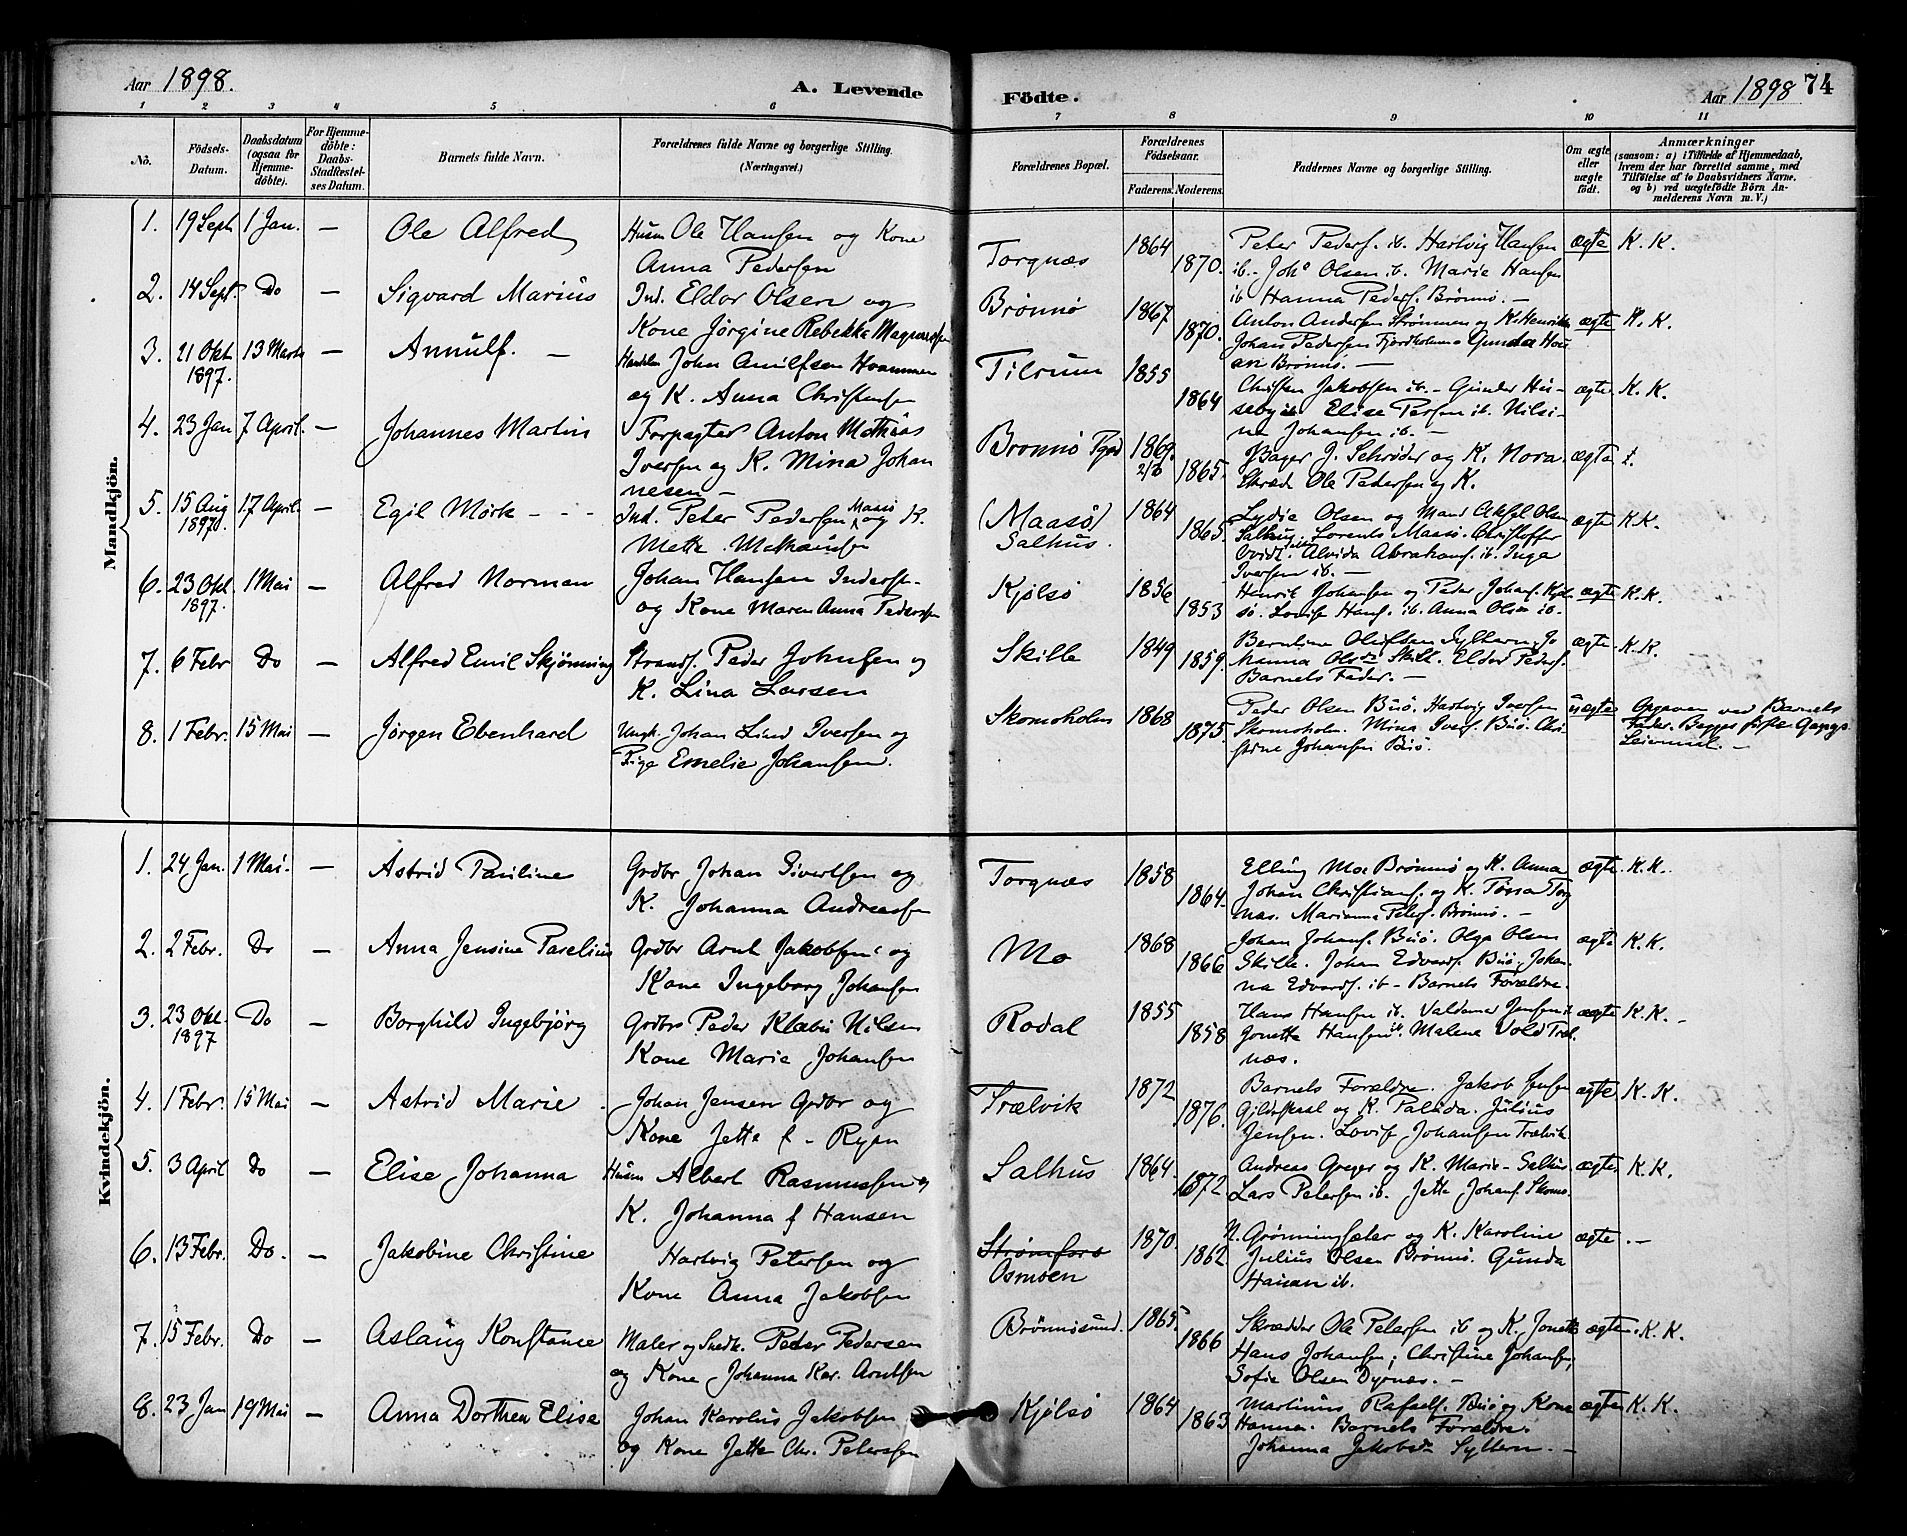 Aar 1898.
A. Levende
Födte.
Aar 1898 74
1 2 3 4 5 6 7 8 9 10 11
No.
Födsels-Datum.
Daabsdatum (ogsaa for Hjemme-döbte).
For Hjemme-döbte: Daabs-Stadfæstel-ses Datum.
Barnets fulde Navn.
Forældrenes fulde Navne og borgerlige Stilling. (Næringsvei.)
Forældrenes Bopæl.
Forældrenes Födselsaar.
Faderens. Moderens.
Faddernes Navne og borgerlige Stilling.
Om ægte eller uægte födt.
Anmærkninger
(saasom: a) i Tilfælde af Hjemmedaab,
hvem der har forrettet samme, med
Tilföielse af to Daabsvidners Navne,
og b) ved uægtefödte Börn An-
melderens Navn m. V.)
Mandkjön.
1. 19 Sept 1 Jan. — Ole Alfred
Husm Ole Hansen og Kone
Anna Pedersen
Torgnæs 1864 1870.
Peter Peders. ib. Hartvig Hansen
ib. Johs Olsen ib. Marie Hansen
ib Hanna Peders. Brönnö. —
ægte K. K.
2. 14 Sept. Do — Sigvard Marius
Ind. Eldor Olsen og
Kone Jörgine Rebekke
Brönnö 1867 1870.
Anton Andersen Strömmen og K. Henrikke
Johan Pedersen Gunda
Brönnö. —
ægte K. K.
3. 21 Okt 1897. 13 Marts — Annulf. —
John
og K. Anna Christensen
Tilrum 1855 1864
Christen Jakobsen ib. — Gunder Hu-
seby ib. Elise ib. Nilsi-
na Johansen ib. —
ægte. K. K.
4. 23 Jan 7 April. — Johannes Martin
Forpagter Anton Mathias
Iversen og K. Mina Johan
nesen —
Brönnö Pgd 1869. 2/6 1865.
Bager J. Schröder og K. Nora.
Skræd. Ole Pedersen og K.
ægte t.
5. 15 Aug 1897. 17 April. — Egil Mörk - - -
Ind. Peter Pedersen Maasö og K.
Mette
(Maasö)
Salhus. 1864 1865.
Lydie Olsen og Mand Aksel Olsen
Salhus. Lorents Maasö. Christoffer
Alvida Abrahams. ib. Inga
Iversen ib. —
ægte K K.
6. 23 Okt. 1897. 1 Mai — Alfred Norman
Johan Hansen Inderst.
og Kone Maren Anna Pedersen
Kjölsö 1856 1853
Henrik Johansen og Peder Johans. Kjöl-
sö. Lovise Hans. ib. Anna Olsen ib.
ægte K. K.
7. 6 Febr Do — Alfred Emil Skjönning
Strands. Peder Johnsen og
K. Lina Larsen
Skille 1849 1859.
Berntine Olufsen Syltern. Jo
hanna Skill. Eldor Peders.
Barnets Fader. —
ægte. K. K.
8. 1 Febr. 15 Mai — Jörgen Ebenhard
Ungk. Johan Lind Iversen og
Pige Emelie Johansen.
Skomoholm 1868 1875.
Peder Olsen Buö. Hartvig Iversen
Skomoholm. Mina Ivers. Buö. Chri-
stine Johansen Buö.
uægte Opgiven ved Barnets
Fader. Begges förste Gangs
Leiermaal. —
Kvindekjön.
1. 24 Jan. 1 Mai. — Astrid Pauline
Grdbr Johan Sivertsen og
K. Johanna Andreassen
Torgnæs 1858 1864.
Elling Mo Brönnö og K. Anna
Johan Christians. og K. Torg
næs. Marianna Peters. Brönnö. —
ægte. K. K.
2. 2 Febr. Do — Anna Jensine Paselius
Grdbr Arnt Jakobsen og
Kone Ingeborg Johansen
Mo 1868 1866
Johan Johans. Buö. Olga Olsen
Skille. Johan Edvards. Buö. Johan-
na Edvards. ib. — Barnets Forældre.
ægte K. K.
3. 23 Okt. 1897 Do — Borghild Ingebjörg
Grdbr Peder Klæbu Nilsen
Kone Marie Johansen
Rodal 1855 1858
Hans Hansen ib. Valdemar Jensen
Jonette Hansen ib. Malene Vold Træl
næs.
ægte K. K. —
4. 1 Febr. 15 Mai — Astrid Marie
Johan Jensen Grdbr og
Kone Jetta f. Ryan
Trælvik 1872 1876.
Barnets Forældre. Jakob Jensen
og K. Julius
Jensen. Lovise Johansen Trælvik
ægte K. K.
5. 3 April Do — Elise Johanna
Husm Albert Rasmussen og
K. Johanna f Hansen
Salhus 1864. 1872.
Andreas Greger og K. Marie Salhus
Lars Petersen ib. Jetta Johans. Skomo.
ægte. K. K.
6. 13 Febr. Do. — Jakobine Christine
Hartvig Petersen og
Kone Anna Jakobsen
Strömfors
Osmoen 1870. 1862
N. Grönningsæter og K. Karoline
Julius Olsen Brönnö. Gunda
ib.
ægte. —
7. 15 Febr. Do — Aslaug Konstanse
Maler og Peder Pedersen
og Kone Johanna Kar. Arntsen
Brönnösund. 1865. 1866
Skrædder Ole Petersen ib og K. Jonette
Hans Johansen; Christine Johansen,
Sofie Olsen Dypnæs. —
ægte. K. K.
8. 23 Jan 19 Mai — Anna Dorthea Elise
Johan Karolus Jakobsen
og Kone Jetta Chr. Petersen
Kjölsö 1864 1863
Martinus Rafaels. Buö og Kone
Hanna. Barnets Forældre.
Johanna Jakobsdr Syltern. —
ægte K. K.